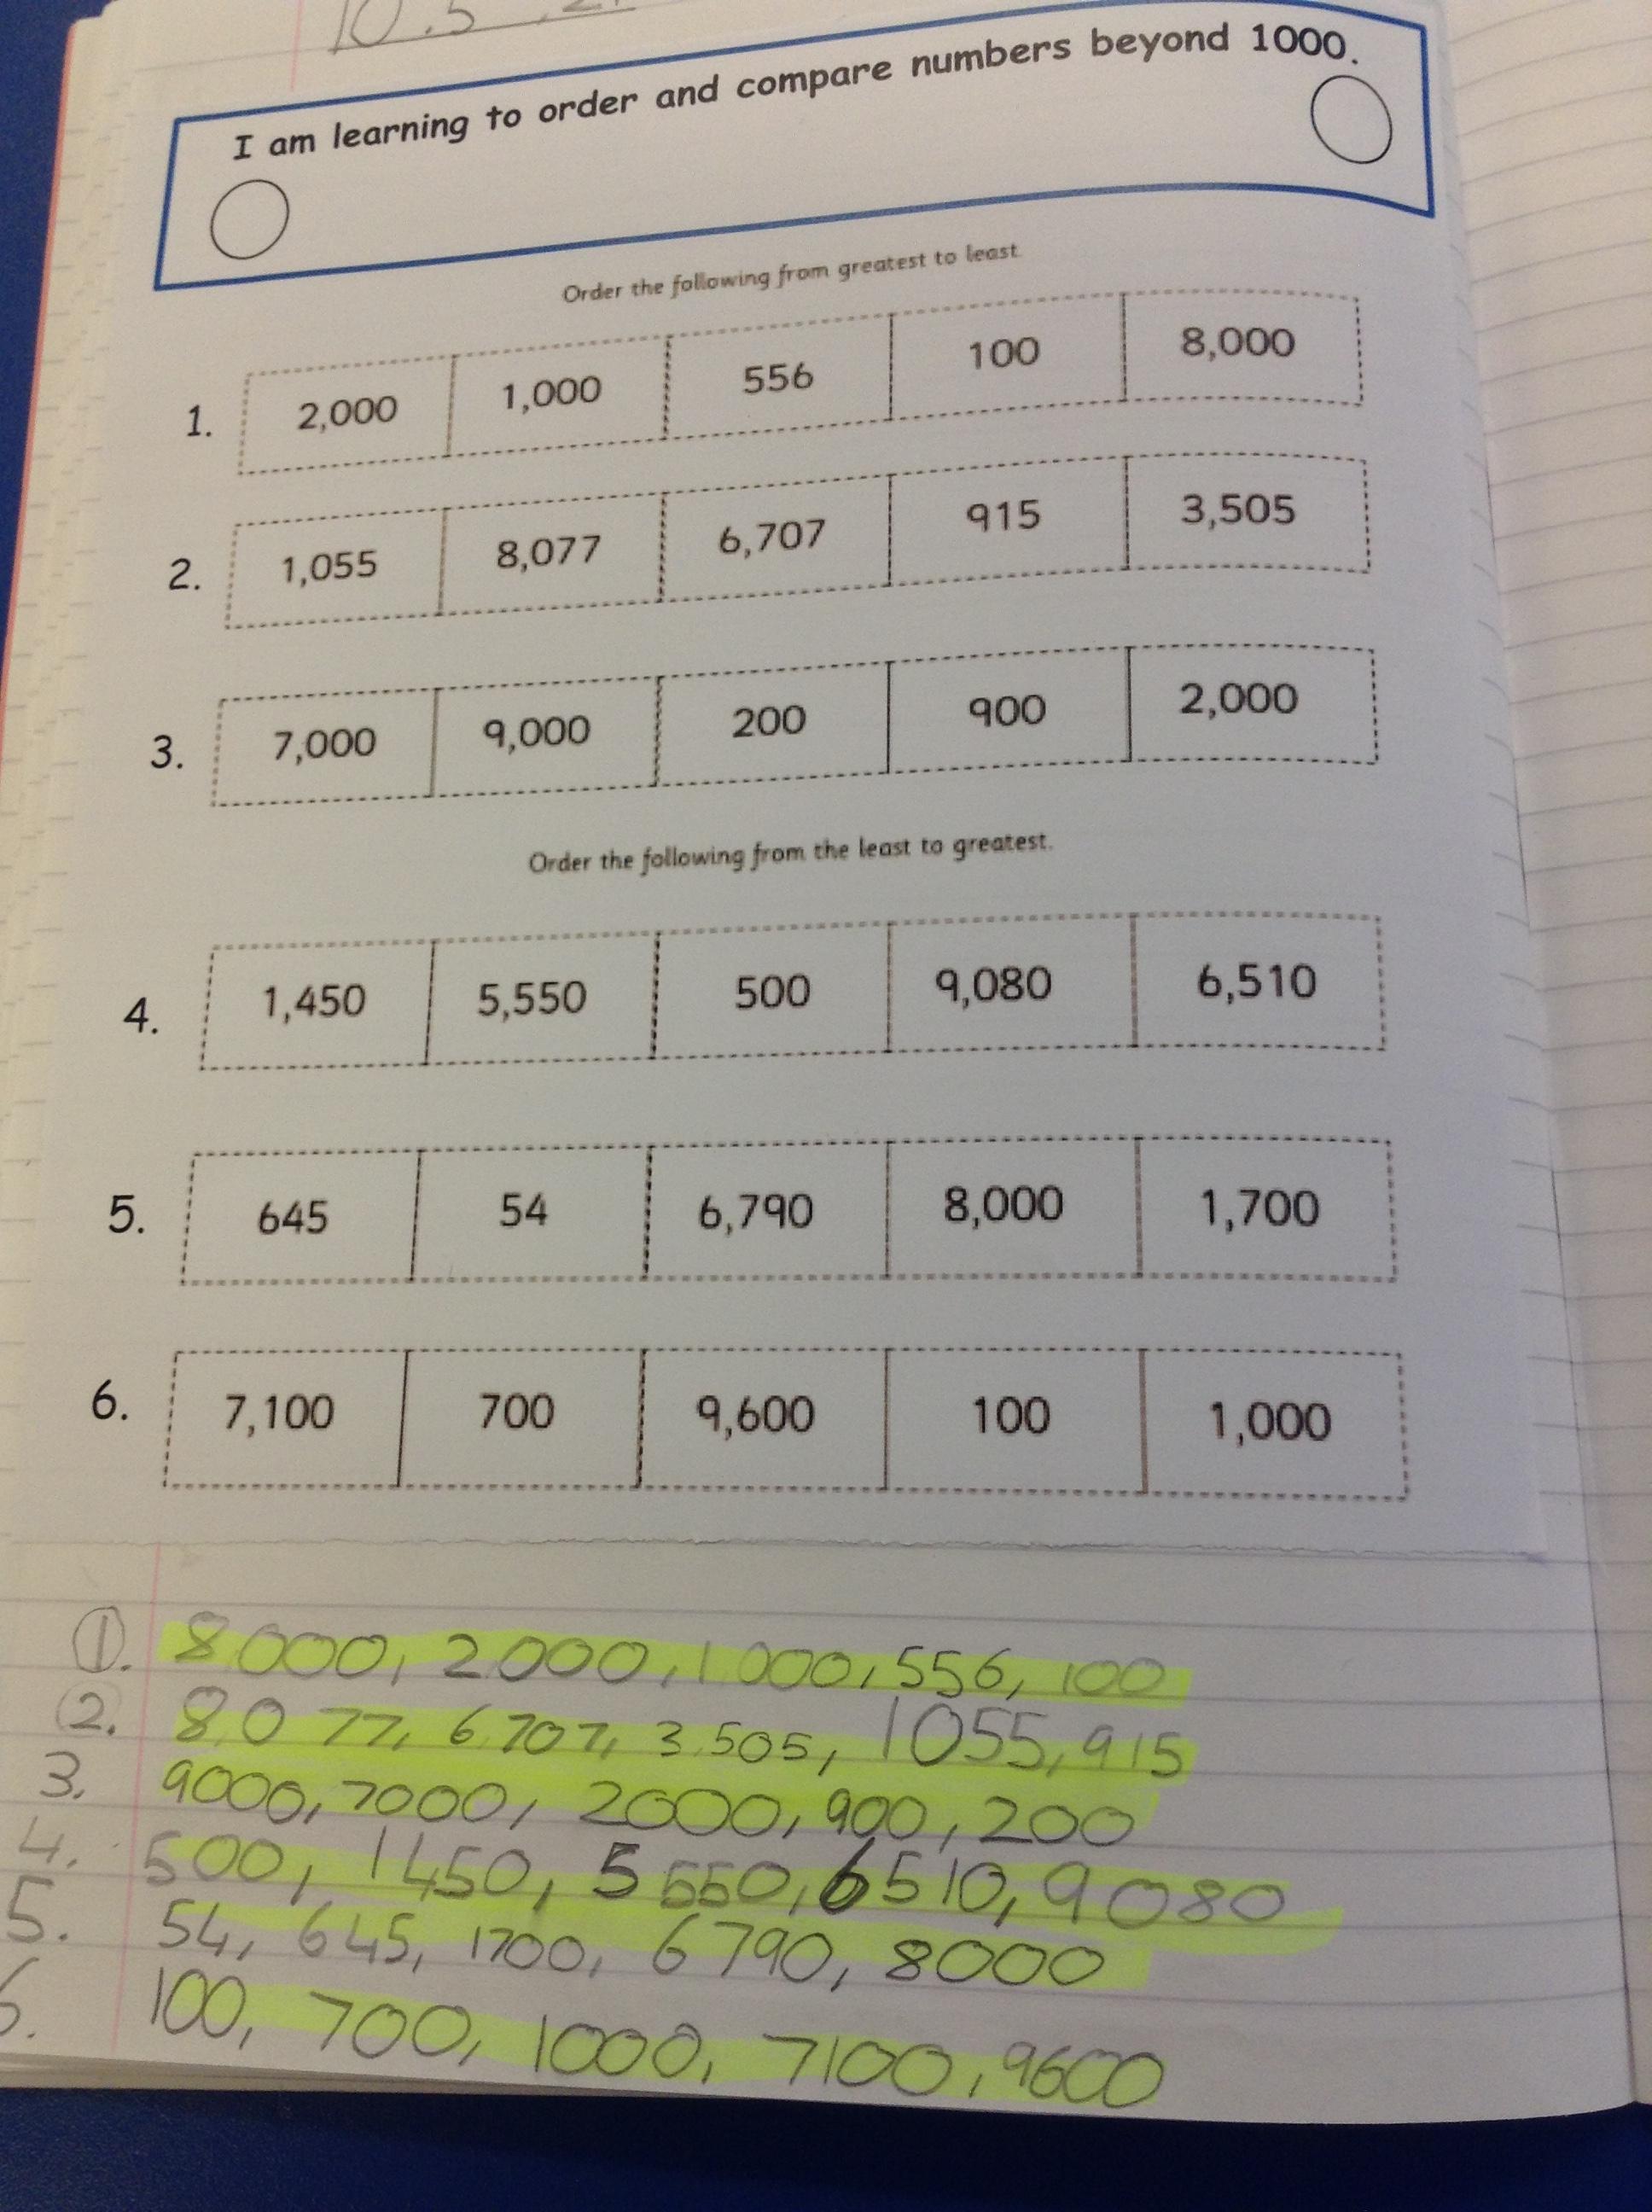 I am learning to order and compare numbers beyond 1000.
Order the following from greatest to least.
1. 2,000 1,000 556 100 8,000
2. 1,055 8,077 6,707 915 3,505
3. 7,000 9,000 200 900 2,000
Order the following from the least to greatest.
4. 1,450 5,550 500 9,080 6,510
5. 645 54 6,790 8,000 1,700
6. 7,100 700 9,600 100 1,000
1. 8,000, 2000, 1000, 556, 100
2. 8,077, 6,707, 3,505, 1055, 915
3. 9000, 7000, 2000, 900, 200
4. 500, 1450, 5550, 6510, 9080
5. 54, 645, 1700, 6790, 8000
6. 100, 700, 1000, 7100, 9600